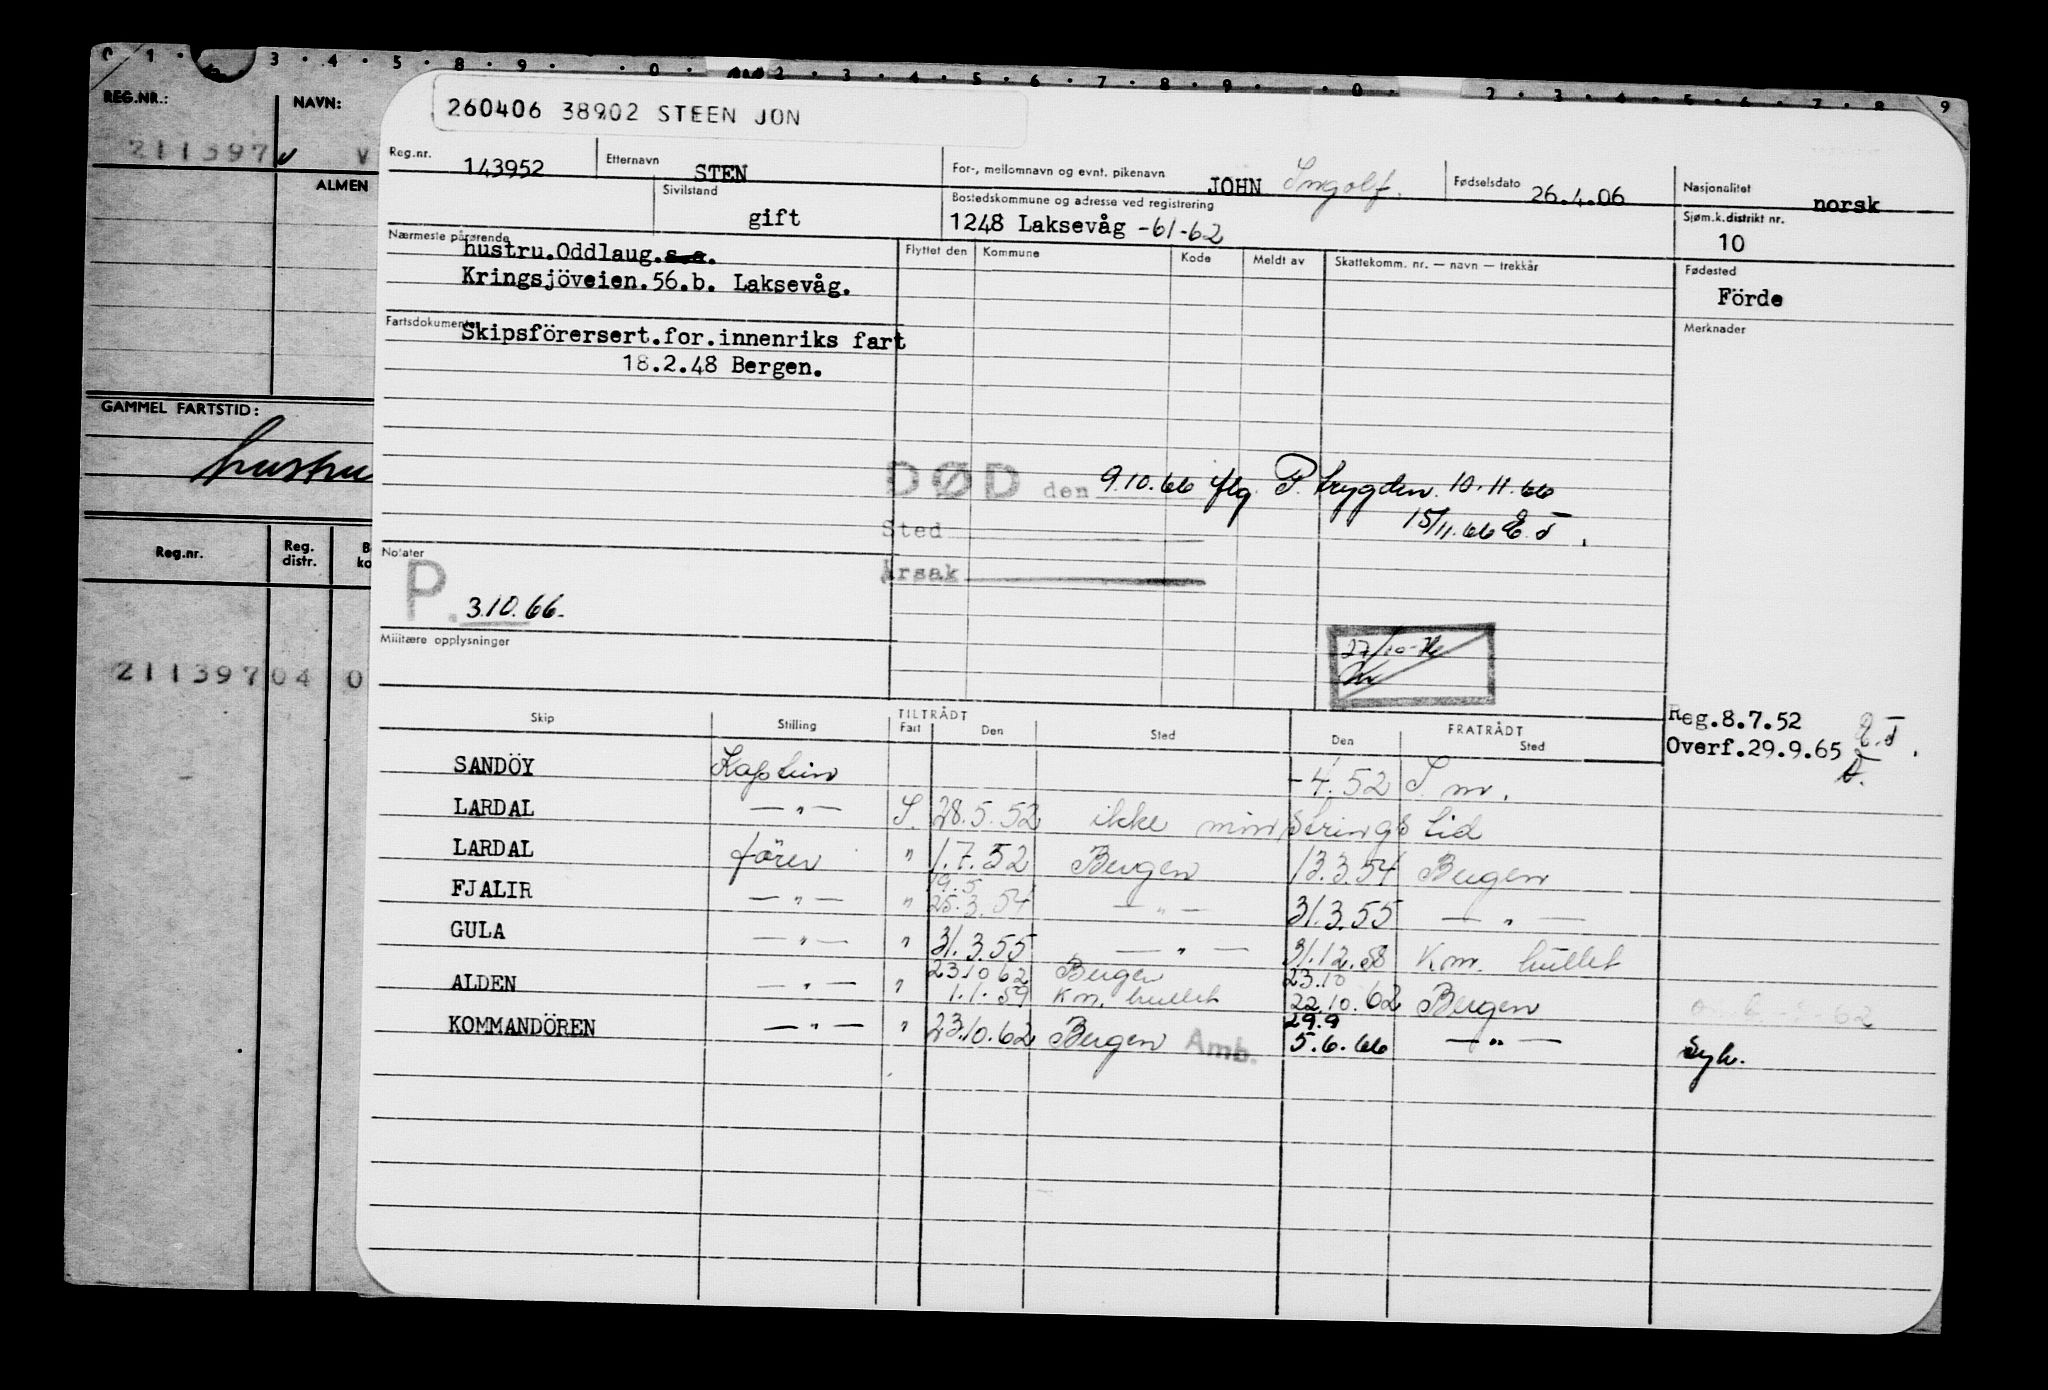 0 1 · 3 · 4 · 5 · 8 · 9 · · 0 · 2 · 3 · 4 · 5 · 6 · 7 · 8 · 9 · · 0 · 2 · 3 · 4 · 5 · 6 · 7 · 8 9
REG.NR.: NAVN:
211397 V
ALMEN
GAMMEL FARTSTID:
hustru
Reg.nr. Reg. distr. B ko
211397 04 0
260406 38902 STEEN JON
Reg.nr. 143952 Etternavn STEN For-, mellomnavn og evnt. pikenavn JOHN Ingolf. Fødselsdato 26.4.06 Nasjonalitet norsk
Sivilstand gift Bostedskommune og adresse ved registrering 1248 Laksevåg -61-62 Sjøm.k.distrikt nr. 10
Nærmeste pårørende hustru.Oddlaug.s.a. Flyttet den Kommune Kode Meldt av Skattekomm. nr. — navn — trekkår Fødested
Kringsjöveien.56.b. Laksevåg. Förde
Fartsdokumenter Skipsförersert.for.innenriks fart Merknader
18.2.48 Bergen.
DØD den 9.10.66 flg. P. trygden. 10.11.66
Sted 15/11.66 E.T.
Årsak
Notater
P. 3.10.66.
Militære opplysninger
27/10-76
Reg.8.7.52 E.T.
Overf.29.9.65
Skip Stilling TILTRÅDT Fart Den Sted FRATRÅDT Den Sted
SANDÖY Kaptein -4.52 S. m.
LARDAL — " — S. 28.5.52 ikke mønstrings tid
LARDAL förer " 1.7.52 Bergen 13.3.54 Bergen
19.5
FJALIR — " — " 25.3.54 — " — 31.3.55 — " —
GULA — " — " 31.3.55 — " — 31.12.58 Km. hullet
23.10 62 Bergen 23.10
ALDEN — " — " 1.1.59 Km. hullet 22.10.62 Bergen
29.9
KOMMANDÖREN — " — " 23.10.62 Bergen Amb. 5.6.66 — " — Syk.